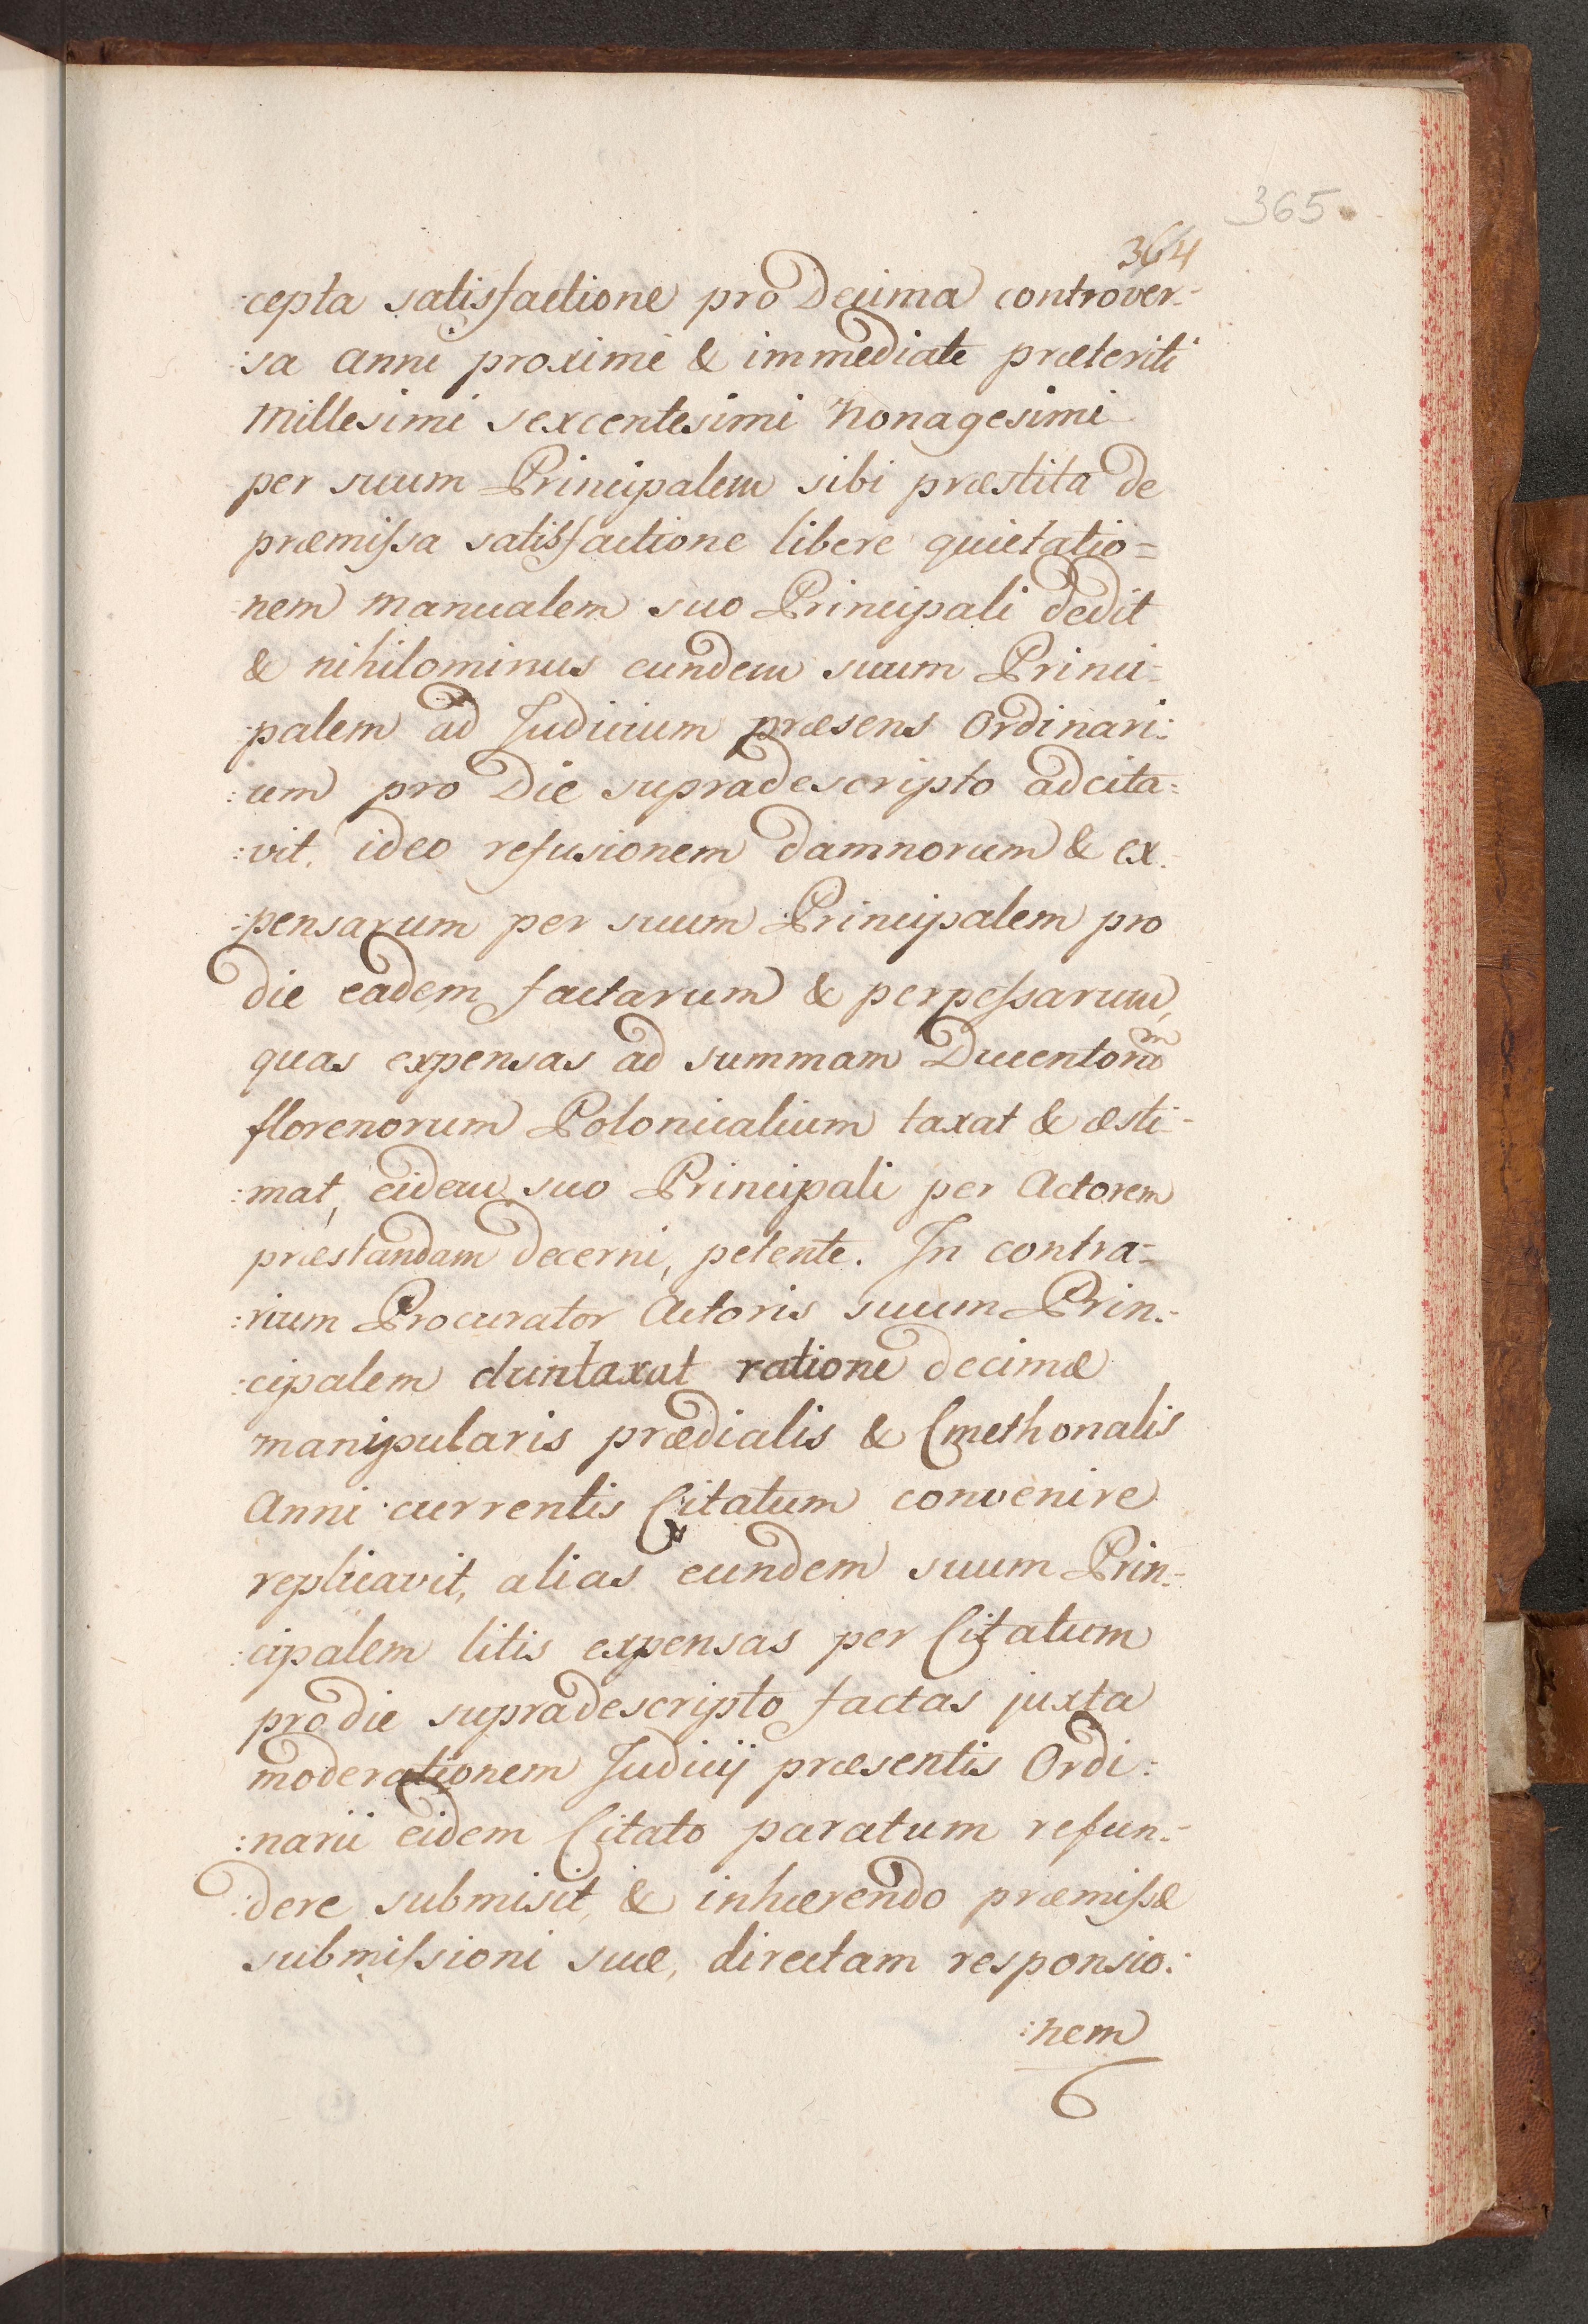 365.
364
:cepta satisfactione pro Decima controver:
:sa anni proximè & immediatè præteriti
Millesimi sexcentesimi Nonagesimi
per suum Principalem sibi præstita de
præmissa satisfactione liberè quietatio=
nem manualem suo Principali dedit
& nihilominus eundem suum Princi:
:palem ad Judicium præsens Ordinari:
:um pro Die supradescripto adcita:
:vit, ideo refusionem damnorum & ex:
:pensarum per suum Principalem pro
die eadem factarum & perpessarum,
quas expensas ad summam Ducentorum
florenorum Polonicalium taxat & æsti:
:mat, eidem suo Principali per Actorem
præstandam decerni, petente. In contra:
:rium Procurator Actoris suum Prin:
:cipalem duntaxat ratione decimæ
manipularis prædialis & Cmethonalis
Anni currentis Citatum convenire
replicavit, alias eundem suum Prin:
:cipalem litis expensas per Citatum
pro die supradescripto factas juxta
moderationem Judicij præsentis Ordi:
:narii eidem Citato paratum refun:
:dere submisit, & inhærendo præmissæ
submissioni suæ, directam responsio:
:nem